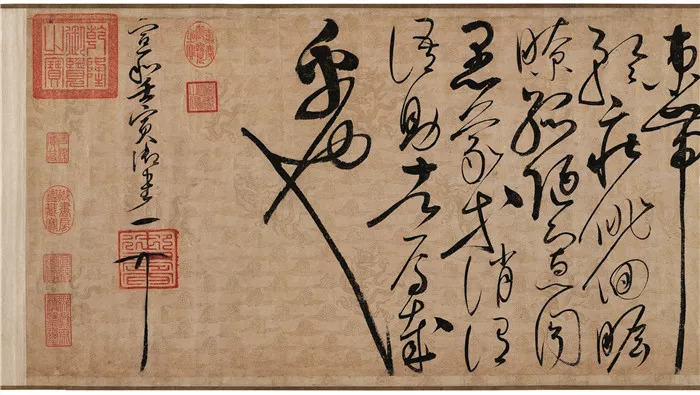 束帶
矜莊俳佪瞻
眺孤陋寡聞
愚蒙等誚謂
語助者焉哉
乎也
宣和壬寅御書
乾隆御覽之寶
御書